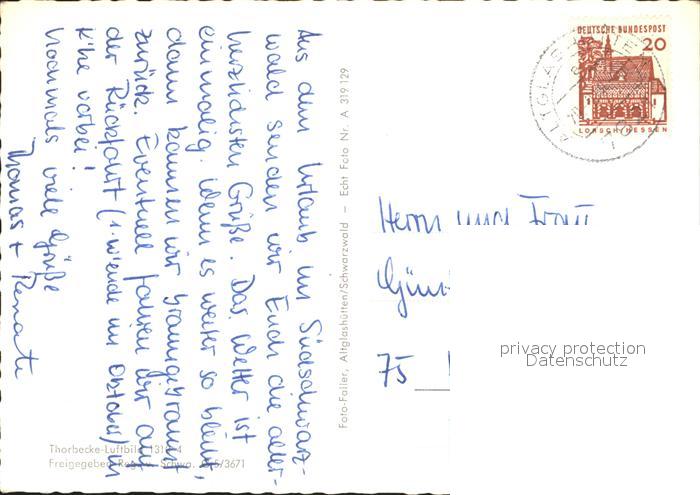 Aus dem Urlaub im Südschwarz-
wald senden wir Euch die aller-
herzlichsten Grüße. Das Wetter ist
einmalig. Wenn es weiter so bleibt,
dann kommen wir braungebrannt
zurück. Eventuell fahren wir auf
der Rückfahrt (1. W'ende im Oktober) in
K'he vorbei!
Nochmals viele Grüße
Thomas + Renate
Foto-Faller, Altglashütten/Schwarzwald — Echt Foto Nr. A 319 129
Thorbecke-Luftbild
Freigegeben Reg. Schwa. 5/3671
DEUTSCHE BUNDESPOST
20
LORSCH/HESSEN
Herrn und Frau
Gün
75
privacy protection
Datenschutz